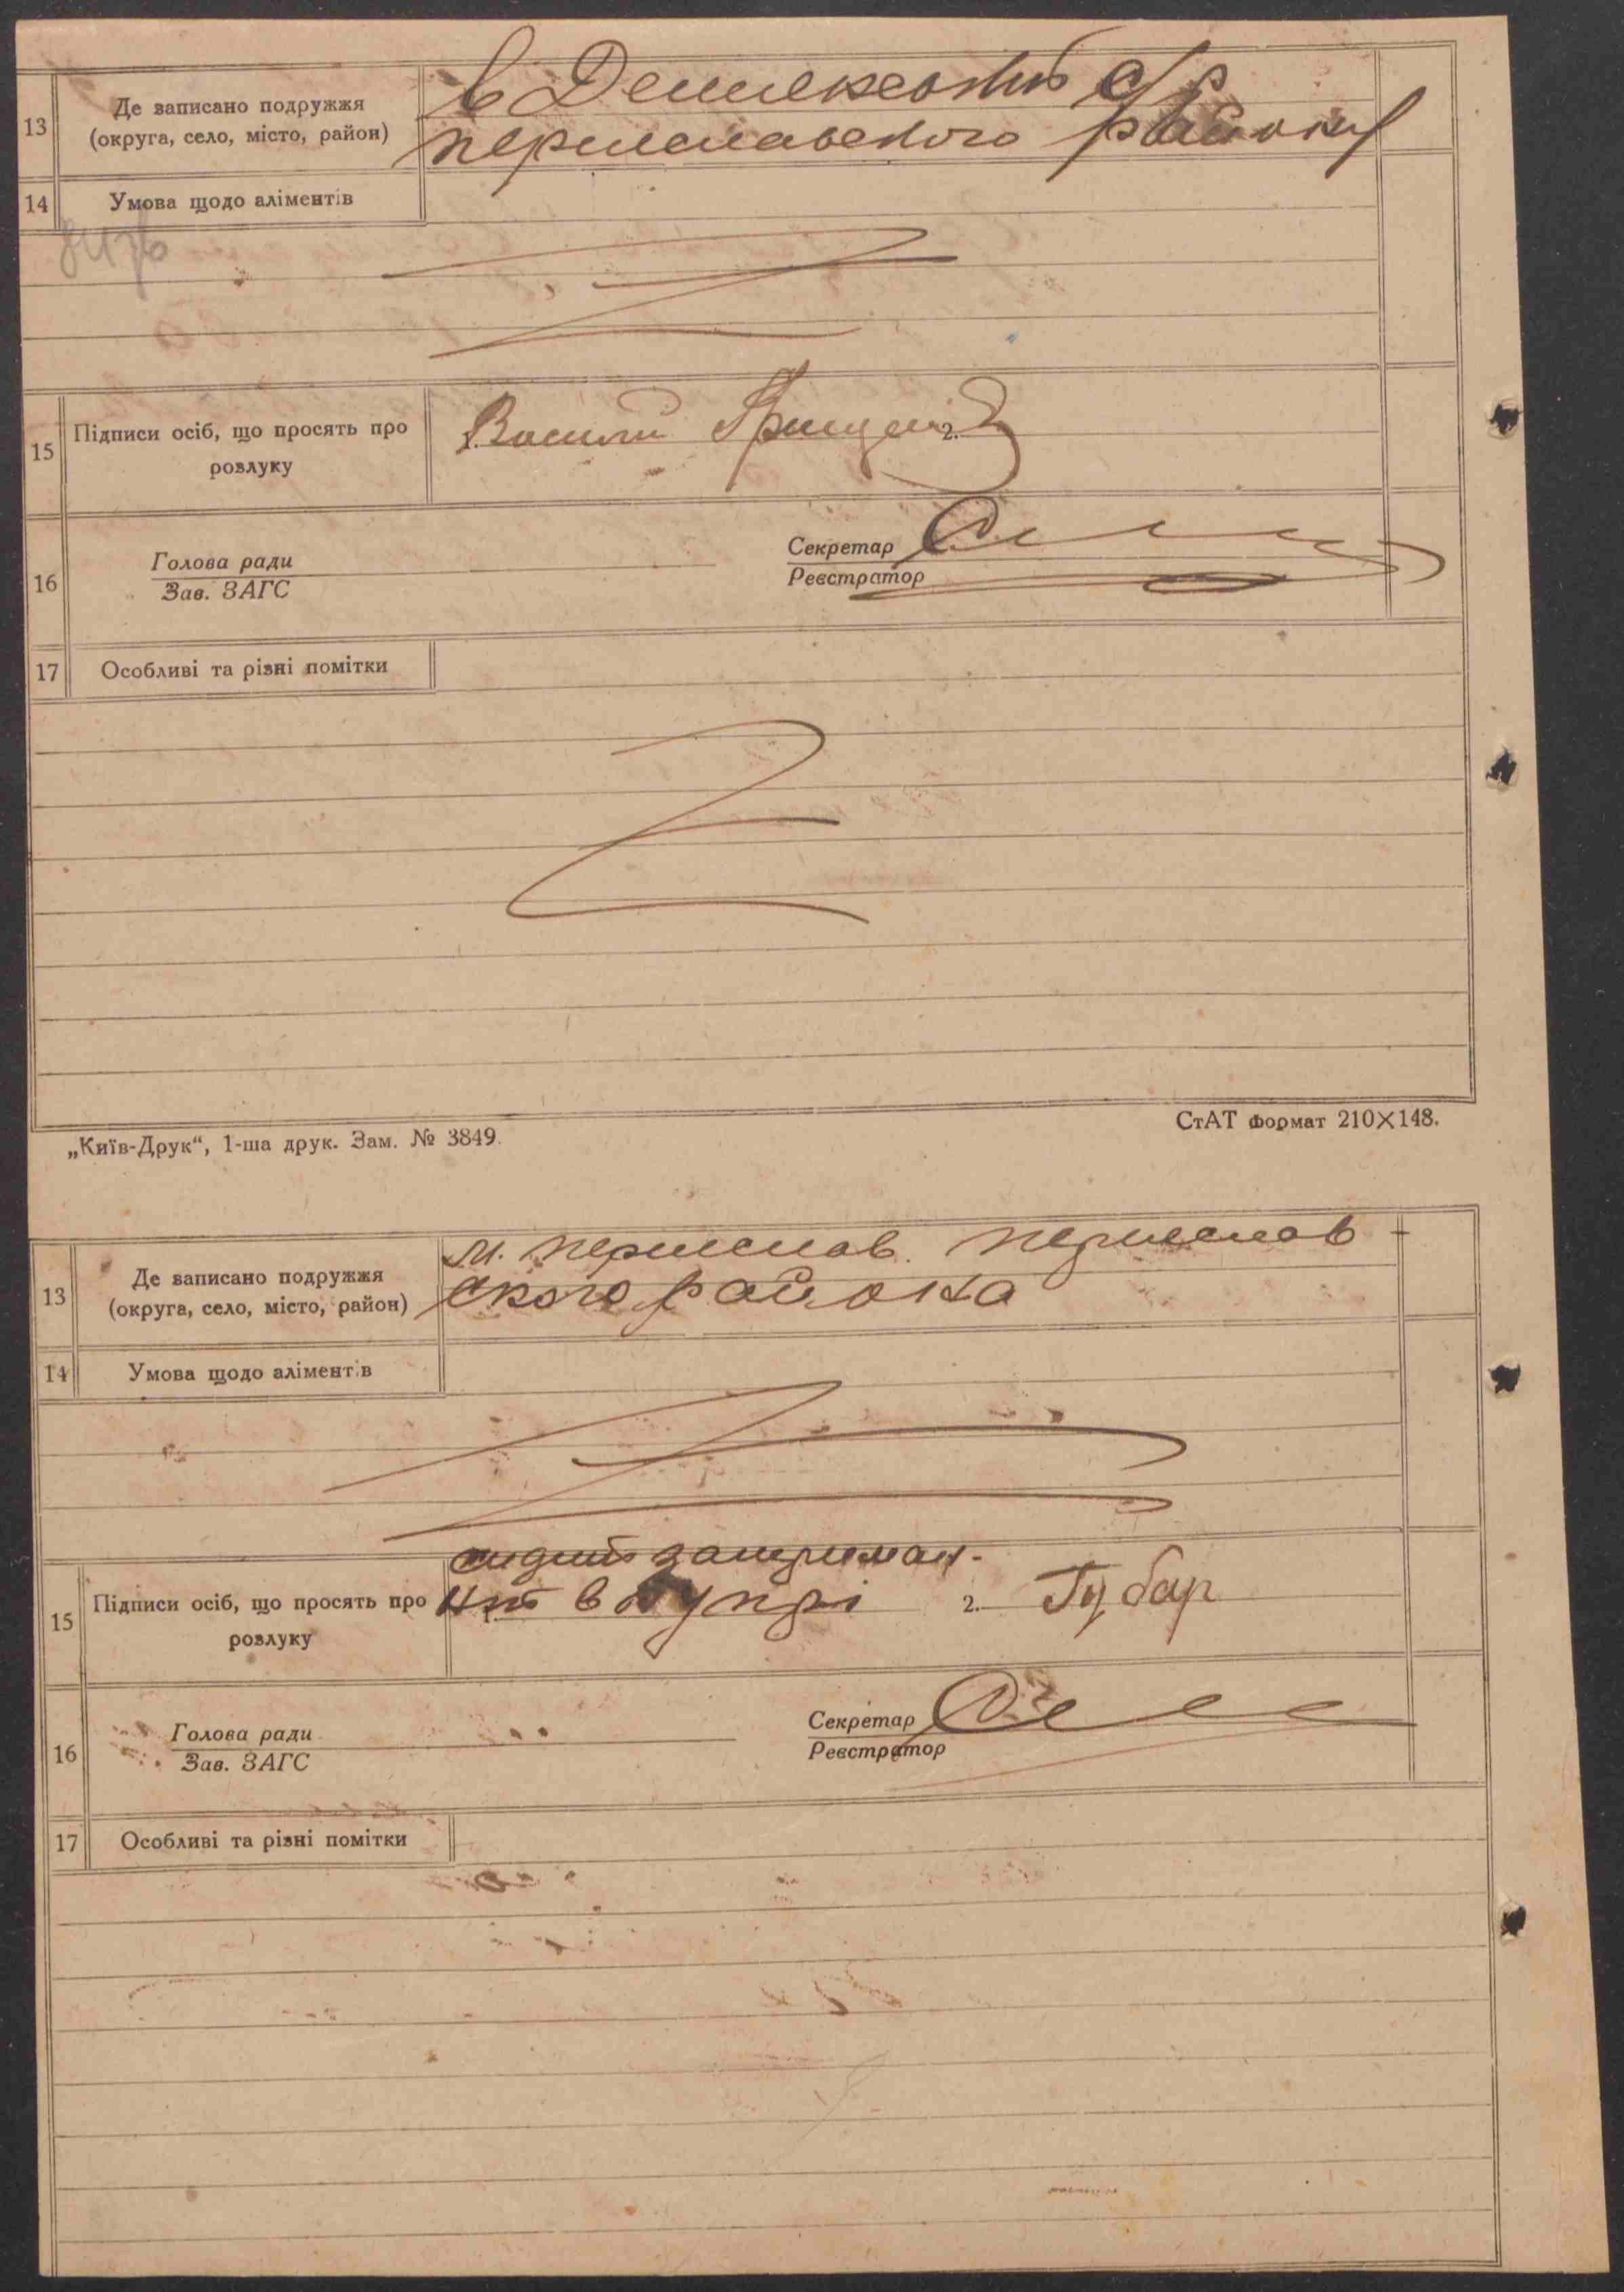 13
Де записано подружжя
(округа, село, місто, район)
в с/р
переяславського району
14
Умова щодо аліментів
15
Підписи осіб, що просять про
розлуку
1. Василь Грищенко 2.
16
Голова ради
Зав. ЗАГС
Секретар
Реєстратор
17
Особливі та різні помітки
„Київ-Друк“, 1-ша друк. Зам. № 3849.
СтАТ формат 210×148.
13
Де записано подружжя
(округа, село, місто, район)
м. переяслав переяслав-
ского района
14
Умова щодо аліментів
15
Підписи осіб, що просять про
розлуку
сидит затриман-
1. в бупрі 2. Губар
16
Голова ради
Зав. ЗАГС
Секретар
Реєстратор
17
Особливі та різні помітки